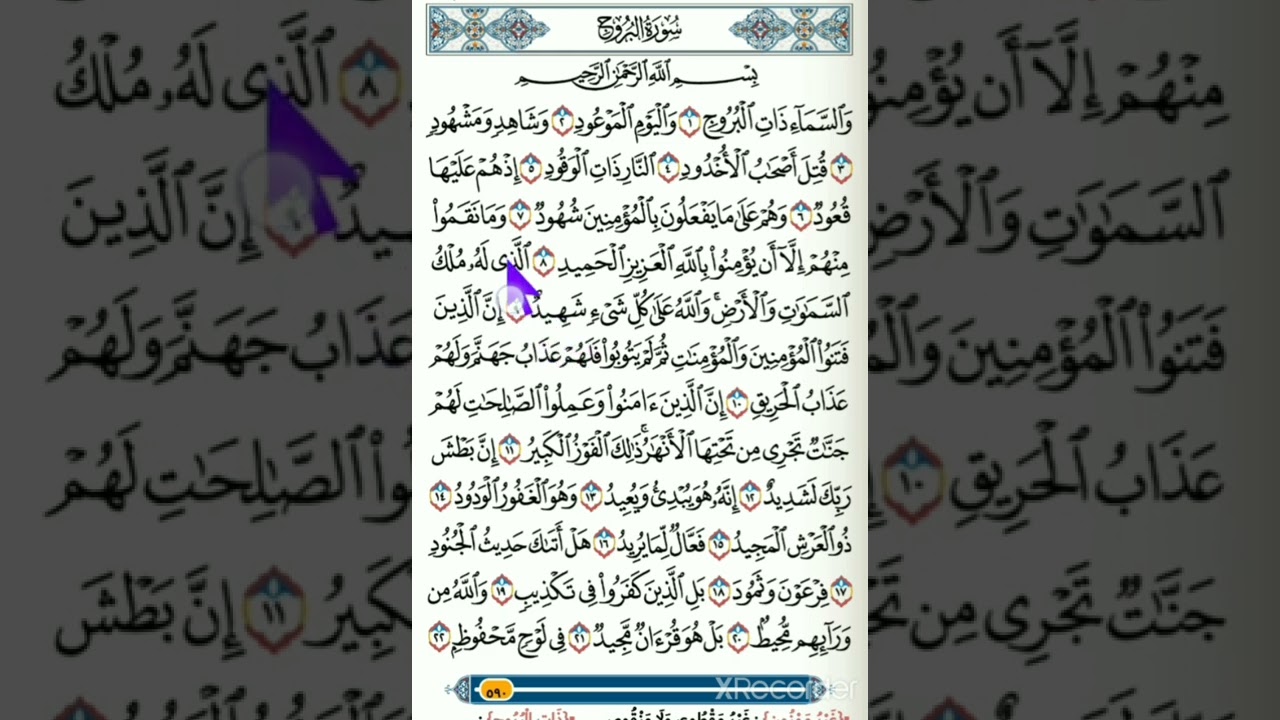 سُورَةُ البُرُوجِ
بِسْمِ ٱللَّهِ ٱلرَّحْمَٰنِ ٱلرَّحِيمِ
وَٱلسَّمَآءِ ذَاتِ ٱلْبُرُوجِ ١ وَٱلْيَوْمِ ٱلْمَوْعُودِ ٢ وَشَاهِدٍ وَمَشْهُودٍ
٣ قُتِلَ أَصْحَٰبُ ٱلْأُخْدُودِ ٤ ٱلنَّارِ ذَاتِ ٱلْوَقُودِ ٥ إِذْ هُمْ عَلَيْهَا
قُعُودٌ ٦ وَهُمْ عَلَىٰ مَا يَفْعَلُونَ بِٱلْمُؤْمِنِينَ شُهُودٌ ٧ وَمَا نَقَمُوا۟
مِنْهُمْ إِلَّآ أَن يُؤْمِنُوا۟ بِٱللَّهِ ٱلْعَزِيزِ ٱلْحَمِيدِ ٨ ٱلَّذِى لَهُۥ مُلْكُ
ٱلسَّمَٰوَٰتِ وَٱلْأَرْضِ ۚ وَٱللَّهُ عَلَىٰ كُلِّ شَىْءٍ شَهِيدٌ ٩ إِنَّ ٱلَّذِينَ
فَتَنُوا۟ ٱلْمُؤْمِنِينَ وَٱلْمُؤْمِنَٰتِ ثُمَّ لَمْ يَتُوبُوا۟ فَلَهُمْ عَذَابُ جَهَنَّمَ وَلَهُمْ
عَذَابُ ٱلْحَرِيقِ ١٠ إِنَّ ٱلَّذِينَ ءَامَنُوا۟ وَعَمِلُوا۟ ٱلصَّٰلِحَٰتِ لَهُمْ
جَنَّٰتٌ تَجْرِى مِن تَحْتِهَا ٱلْأَنْهَٰرُ ۚ ذَٰلِكَ ٱلْفَوْزُ ٱلْكَبِيرُ ١١ إِنَّ بَطْشَ
رَبِّكَ لَشَدِيدٌ ١٢ إِنَّهُۥ هُوَ يُبْدِئُ وَيُعِيدُ ١٣ وَهُوَ ٱلْغَفُورُ ٱلْوَدُودُ ١٤
ذُو ٱلْعَرْشِ ٱلْمَجِيدُ ١٥ فَعَّالٌ لِّمَا يُرِيدُ ١٦ هَلْ أَتَىٰكَ حَدِيثُ ٱلْجُنُودِ
١٧ فِرْعَوْنَ وَثَمُودَ ١٨ بَلِ ٱلَّذِينَ كَفَرُوا۟ فِى تَكْذِيبٍ ١٩ وَٱللَّهُ مِن
وَرَآئِهِم مُّحِيطٌ ٢٠ بَلْ هُوَ قُرْءَانٌ مَّجِيدٌ ٢١ فِى لَوْحٍ مَّحْفُوظٍۭ ٢٢
٥٩٠
XRecorder